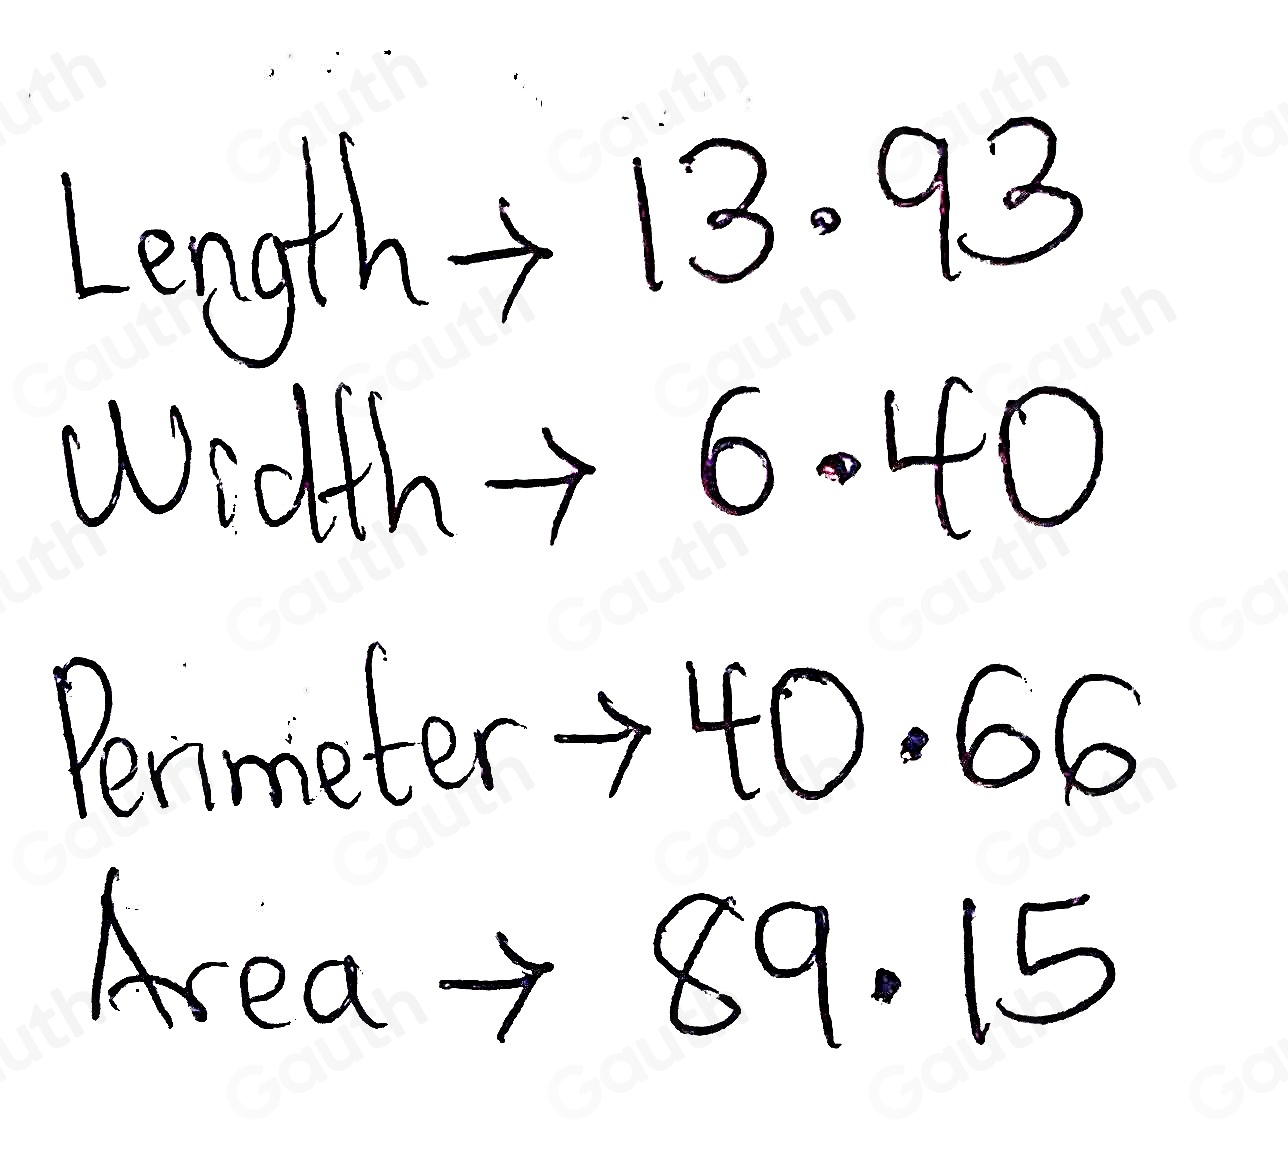 Length → 13.93
Width → 6.40
Perimeter → 40.66
Area → 89.15